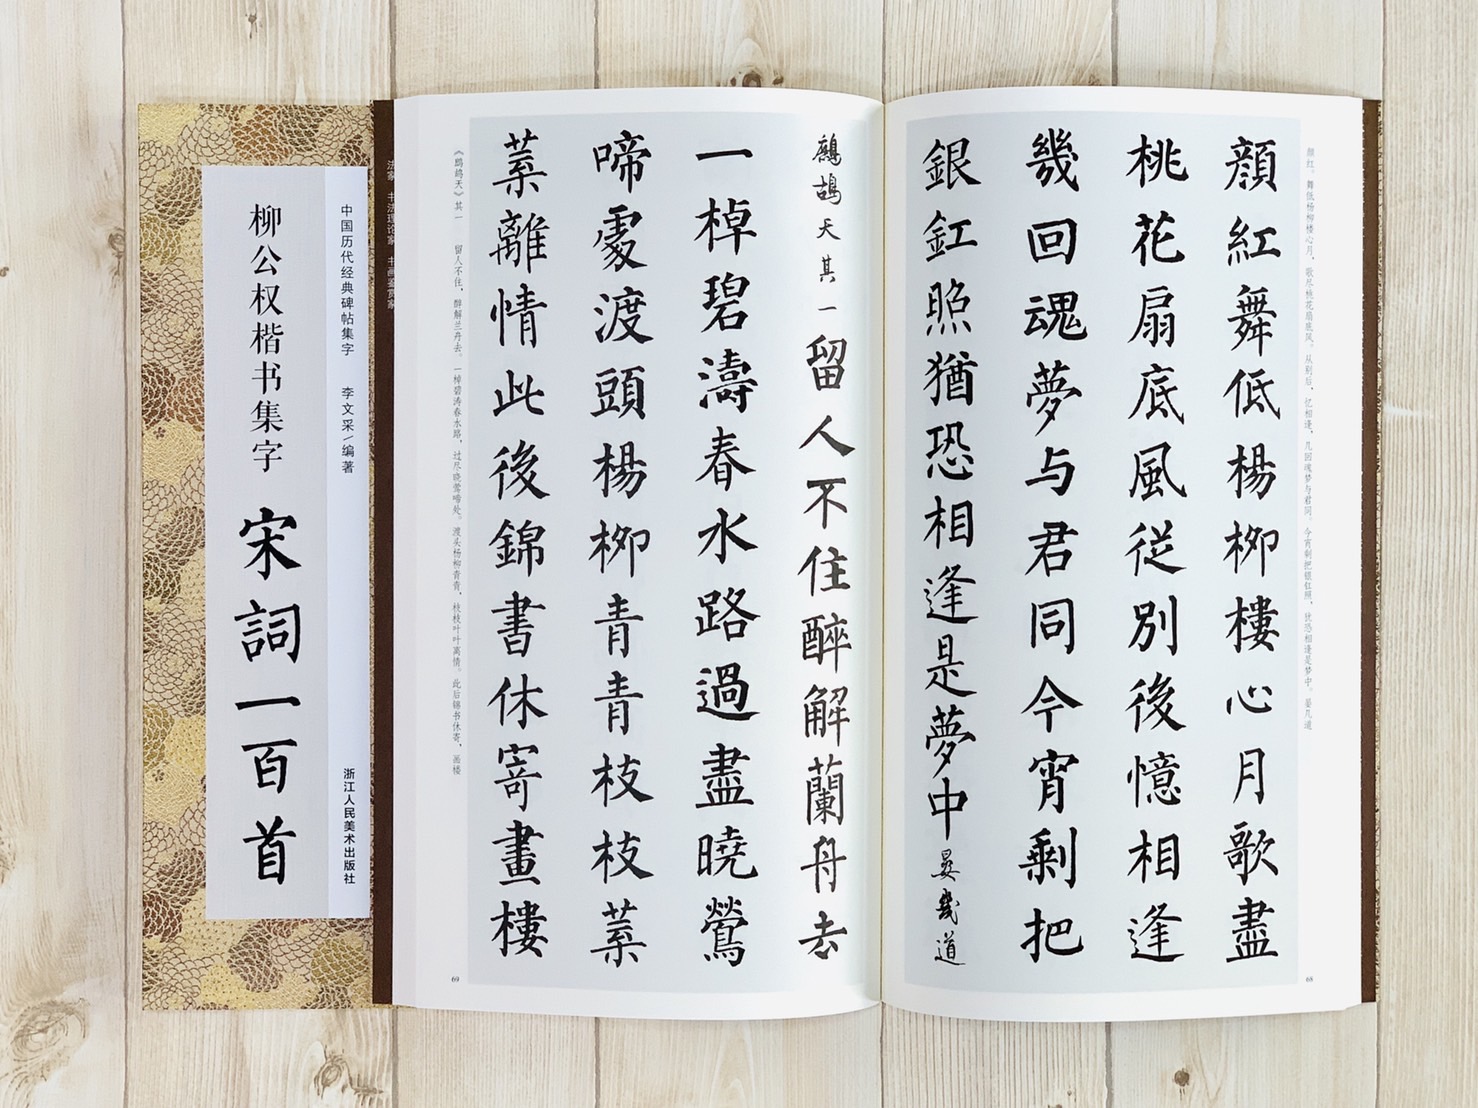 颜红。舞低杨柳楼心月,歌尽桃花扇底风。从别后,忆相逢,几回魂梦与君同。今宵剩把银釭照,犹恐相逢是梦中。晏几道
68
顏紅舞低楊柳樓心月歌盡
桃花扇底風從別後憶相逢
幾回魂夢与君同今宵剩把
銀釭照猶恐相逢是夢中 晏幾道
鷓鴣天其一 留人不住醉解蘭舟去
一棹碧濤春水路過盡曉鶯
啼處渡頭楊柳青青枝枝葉
葉離情此後錦書休寄畫樓
《鹧鸪天》其一 留人不住,醉解兰舟去。一棹碧涛春水路,过尽晓莺啼处。渡头杨柳青青,枝枝叶叶离情。此后锦书休寄,画楼
69
法家 书法理论家 书画鉴赏家
中国历代经典碑帖集字 李文采/编著
浙江人民美术出版社
柳公权楷书集字 宋詞一百首